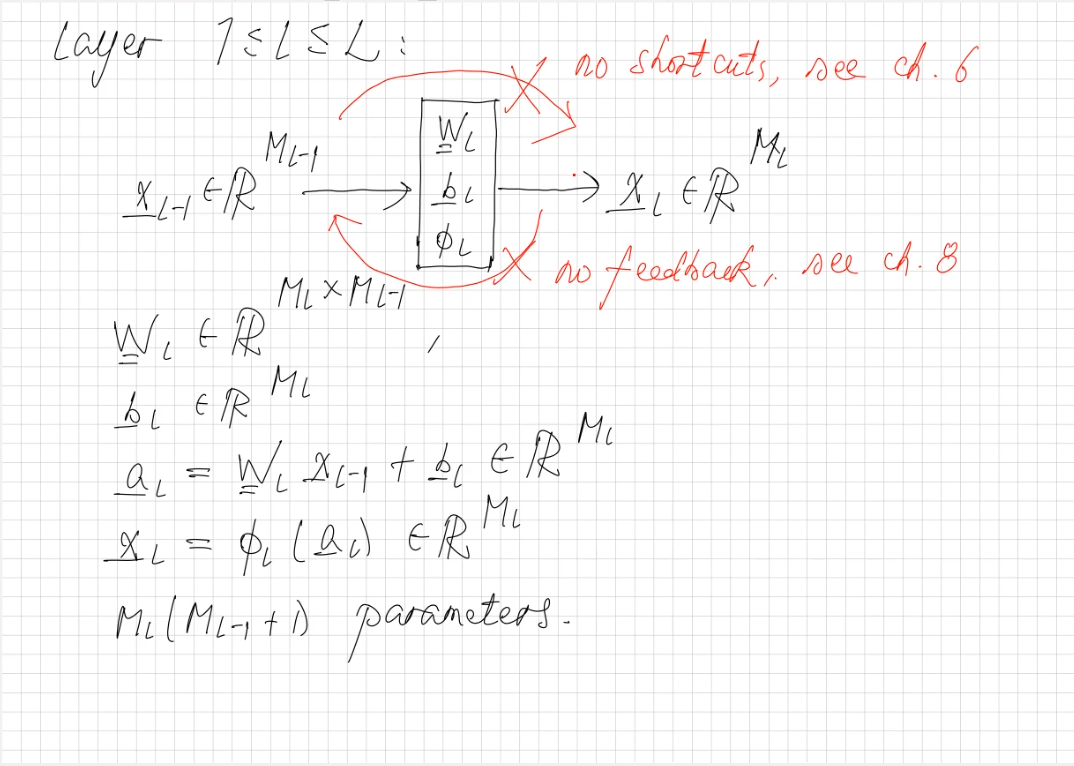 Layer 1 ≤ l ≤ L :
no shortcuts, see ch. 6
x_{l-1} ∈ ℝ^{M_{l-1}}
W_l
b_l
ϕ_l
x_l ∈ ℝ^{M_l}
no feedback, see ch. 8
W_l ∈ ℝ^{M_l × M_{l-1}} ,
b_l ∈ ℝ^{M_l}
a_l = W_l x_{l-1} + b_l ∈ ℝ^{M_l}
x_l = ϕ_l (a_l) ∈ ℝ^{M_l}
M_l (M_{l-1} + 1) parameters.